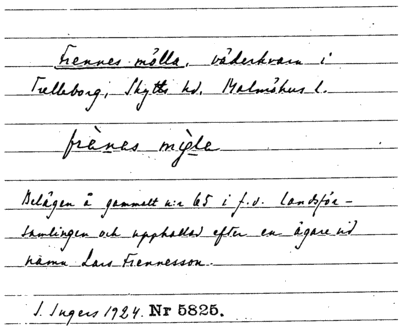 Frennes mölla, väderkvarn i
Trelleborg, Skytts hd. Malmöhus l.
frènes mìgle
Belägen å gammalt n:r 65 i f.d. landsför-
samlingen och uppkallad efter en ägare vid
namn Lars Frennesson.
I. Ingers 1924. Nr 5825.